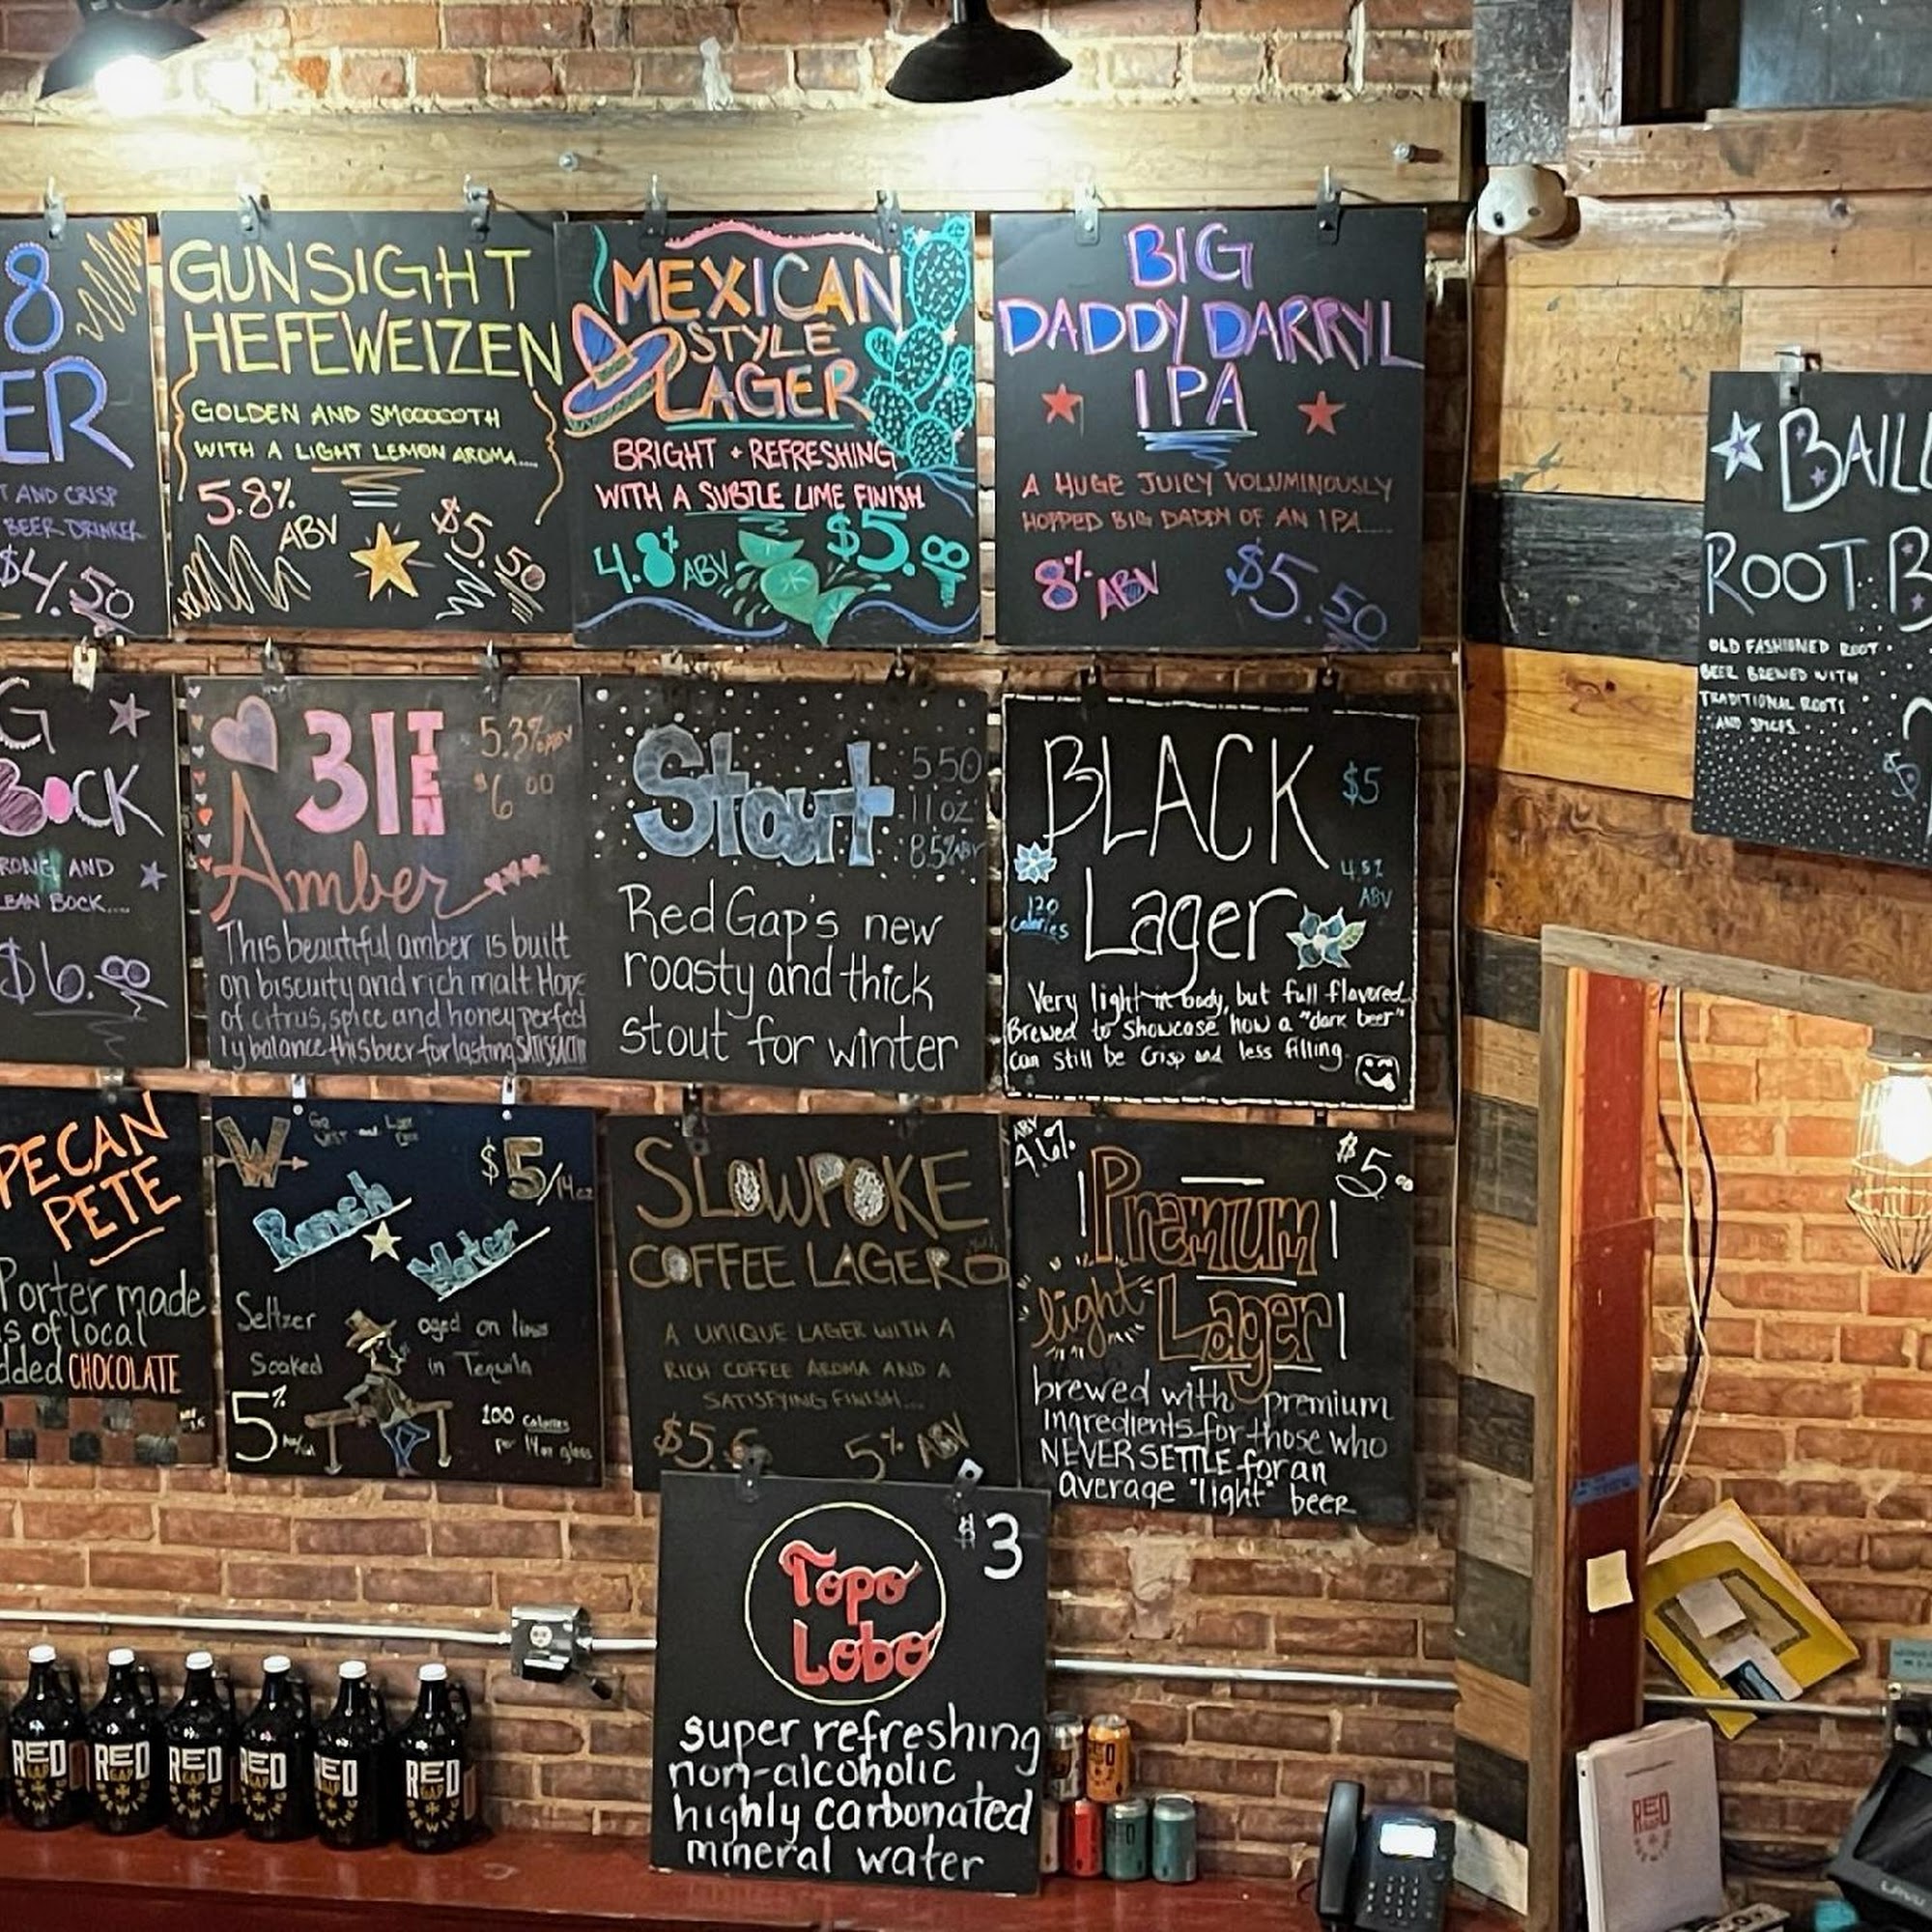 8
ER
T AND CRISP
BEER DRINKER
$4.50
GUNSIGHT
HEFEWEIZEN
GOLDEN AND SMOOOOOTH
WITH A LIGHT LEMON AROMA....
5.8%
ABV
$5.50
MEXICAN
STYLE
LAGER
BRIGHT + REFRESHING
WITH A SUBTLE LIME FINISH
4.8% ABV
$5.00
BIG
DADDY DARRYL
IPA
A HUGE JUICY VOLUMINOUSLY
HOPPED BIG DADDY OF AN IPA.....
8% ABV
$5.50
BAIL
ROOT B
OLD FASHIONED ROOT
BEER BREWED WITH
TRADITIONAL ROOTS
AND SPICES.
$
G
BOCK
RONG AND
EAN BOCK....
$6.00
31TEN
5.3% ABV
$6.00
Amber
This beautiful amber is built
on biscuity and rich malt Hops
of citrus, spice and honey perfect
ly balance this beer for lasting
Stout
5.50
11oz
8.5% ABV
Red Gap's new
roasty and thick
stout for winter
BLACK
$5
Lager
ABV
120
calories
Very light in body, but full flavored.
Brewed to showcase how a "dark beer"
can still be crisp and less filling.
PECAN
PETE
Porter made
s of local
dded CHOCOLATE
W
$5/14oz
Ranch
Water
Seltzer aged on limes
Soaked in Tequila
5%
100 calories
per 14oz glass
SLOWPOKE
COFFEE LAGER
A UNIQUE LAGER WITH A
RICH COFFEE AROMA AND A
SATISFYING FINISH...
5% ABV
ABV
4.6%
$5.00
Premium
light Lager
brewed with premium
ingredients for those who
NEVER SETTLE for an
average "light" beer
$3
Topo
Lobo
super refreshing
non-alcoholic
highly carbonated
mineral water
RED
GAP
BREWING
RED
GAP
BREWING
RED
GAP
BREWING
RED
GAP
BREWING
RED
GAP
BREWING
RED
GAP
BREWING
RED